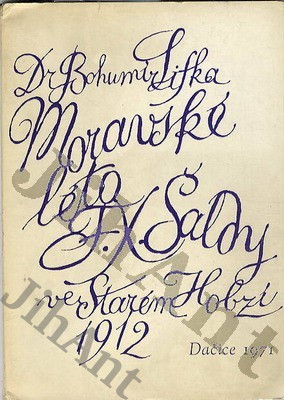 Dr Bohumír Lifka
Moravské
léto
F. X. Šaldy
ve Starém Hobzí
1912
Dačice 1971
JihAnt
JihAnt